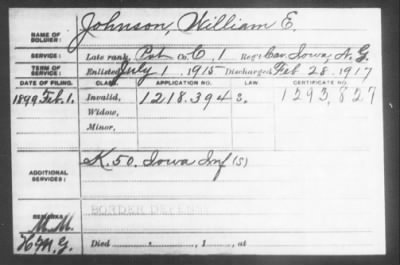 NAME OF SOLDIER: Johnson, William E.
SERVICE: Late rank, Pvt Co. C, 1 Reg't Cav. Iowa, N. G.
TERM OF SERVICE: Enlisted July 1, 1915 Discharged Feb 28, 1917
DATE OF FILING. CLASS. APPLICATION NO. LAW. CERTIFICATE NO.
1899 Feb. 1. Invalid, 1218.394 S. 1293,827
Widow,
Minor,
ADDITIONAL SERVICES: K. 50. Iowa Inf (S)
REMARKS: BORDER DEFENSE
M. M.
Died , 1 , at